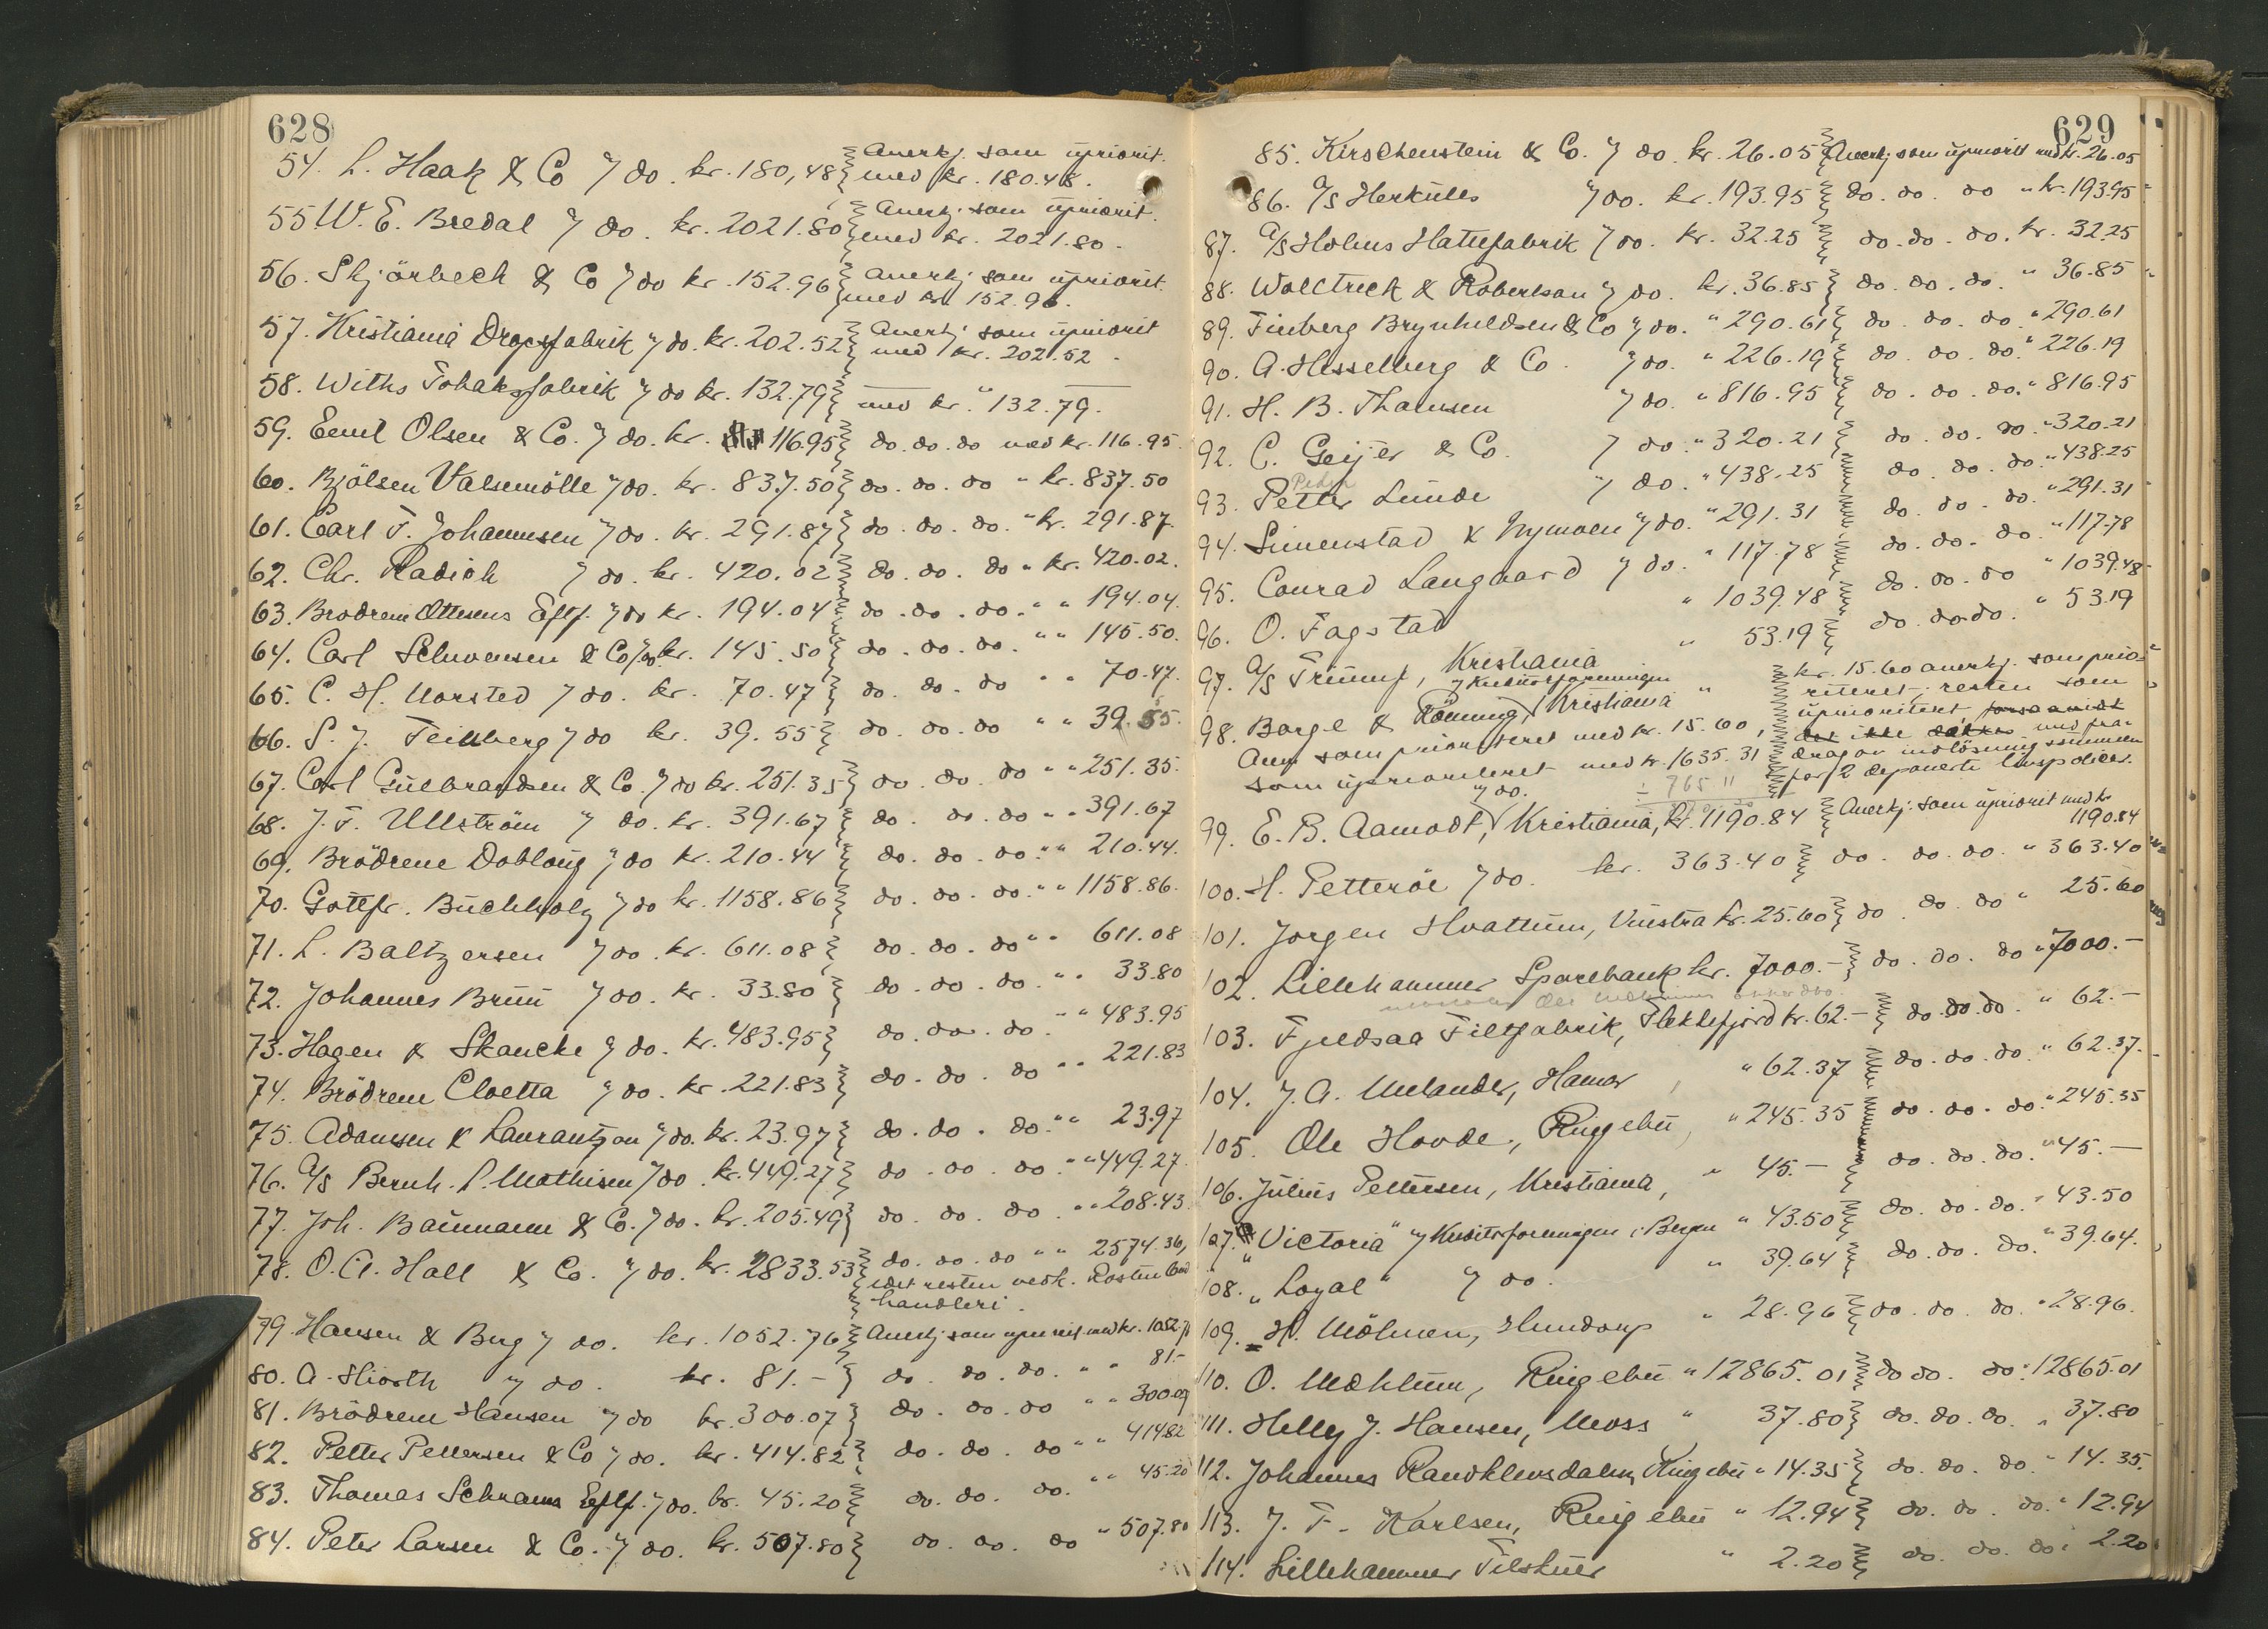 628
54. L. Haak & Co ɔ: do. kr. 180,48 Anerkj. som upriorit.
med kr. 180.48.
55 W. E. Bredal ɔ: do. kr. 2021.80 Anerkj. som upriorit.
med kr. 2021.80.
56. Skjörbech & Co ɔ: do kr. 152.96 Anerkj som upriorit.
med kr. 152.96.
57. Kristiania Dropsfabrik ɔ: do. kr. 202.52 Anerkj som upriorit
med kr. 202.52.
58. Withs Tobaksfabrik ɔ: do kr. 132.79 — " —
med kr. 132.79.
59. Emil Olsen & Co. ɔ: do. kr. 116.95 do. do. do med kr. 116.95.
60. Bjölsen Valsemölle ɔ: do. kr. 837.50 do. do. do " kr. 837.50
61. Carl F. Johannesen ɔ: do. kr. 291.87 do. do. do. " kr. 291.87.
62. Chr. Radich ɔ: do. kr. 420.02 do. do. do " kr. 420.02.
63. Brödrene Ottesens Eftf. ɔ: do kr. 194.04 do. do. do. " " 194.04.
64. Carl Schwensen & Co ɔ: do. kr. 145.50 do. do. do. " " 145.50.
65. C. H. Morsted ɔ: do. kr. 70.47 do. do. do " " 70.47.
66. S. J. Feinberg ɔ: do kr. 39.55 do. do. do " " 39.55.
67. Carl Gulbrandsen & Co. ɔ: do kr. 251.35 do. do. do " " 251.35.
68. J. F. Ullström ɔ: do. kr. 391.67 do. do. do " " 391.67
69. Brödrene Doblong ɔ: do kr. 210.44 do. do. do. " " 210.44.
70. Gottfr. Buchholz ɔ: do kr. 1158.86 do. do. do. " " 1158.86.
71. L. Baltzersen ɔ: do. kr. 611.08 do. do. do " " 611.08
72. Johannes Bruu ɔ: do. kr. 33.80 do. do. do. " " 33.80
73. Hagen & Skancke ɔ: do. kr. 483.95 do. do. do. " " 483.95
74. Brödrene Cloetta ɔ: do. kr. 221.83 do. do. do " " 221.83
75. Adamsen & Laurantzon ɔ: do. kr. 23.97 do. do. do. " " 23.97
76. A/S Bernh. L. Mathisen ɔ: do. kr. 449.27 do. do. do. " " 449.27.
77. Joh. Baumann & Co. ɔ: do. kr. 205.49 do. do. do. " " 208.43
78. O. A. Hall & Co. ɔ: do. kr. 2833.53 do. do. do " " 2574.36,
idet resten vedk. Rosten Land
handleri.
79. Hansen & Berg ɔ: do. kr. 1052.76 Anerkj som upriorit med kr. 1052.76
80. A. Hiorth ɔ: do. kr. 81.- do. do. do. " " 81.-
81. Brödrene Hansen ɔ: do kr. 300.07 do. do. do " " 300.07
82. Petter Pettersen & Co ɔ: do. kr. 414.82 do. do. do " " 414.82
83. Thomas Schrams Eftf. ɔ: do. kr. 45.20 do. do. do. " " 45.20
84. Peter Larsen & Co. ɔ: do. kr. 507.80 do. do. do " 507.80
629
85. Kirschenstein & Co. ɔ: do. kr. 26.05 Anerkj som upriorit med kr. 26.05
86. A/S Herkules ɔ: do. kr. 193.95 do. do. do " kr. 193.95
87. A/S Holms Hattefabrik ɔ: do. kr. 32.25 do. do. do. kr. 32.25
88. Wolctreck & Robertson ɔ: do. kr. 36.85 do. do. do. " 36.85
89. Finberg Brynhildsen & Co ɔ: do. " 290.61 do. do. do. " 290.61
90. A. Hesselberg & Co. ɔ: do. " 226.19 do. do. do. " 226.19
91. H. B. Thamsen ɔ: do. " 816.95 do. do. do. " 816.95
92. C. Geijer & Co. ɔ: do. " 320.21 do. do. do. " 320.21
Peder
93. Petter Lunde ɔ: do. " 438.25 do. do. do. " 438.25
94. Simenstad & Nymoen ɔ: do. " 291.31 do. do. do. " 291.31
95. Conrad Langaard ɔ: do. " 117.78 do. do. do. " 117.78
96. O. Fagstad " 1039.48 do. do. do " 1039.48
97. A/S Triumf, Kristiania " 53.19 do. do. do. " 53.19
ɔ: Kreditforeningen
98. Borge & Rönning, Kristiania " kr. 15.60 anerkj. som prio-
Anm som prioriteret med kr. 15.60, riteret; resten som
som uprioriteret med kr. 1635.31 uprioritert, forsaavidt
det ikke dækkes med fra-
÷ 765 " drag av indlösningssummen
for 2 deponerte livspolicer.
ɔ: do.
99. E. B. Aamodt, Kristiania, kr. 1190.84 Anerkj. som upriorit med kr
1190.84
100. H. Petteröe ɔ: do. kr. 363.40 do. do. do. " 363.40
101. Jorgen Hvattum, Vinstra kr. 25.60 do. do. do " 25.60
102. Lillehammer Sparebank kr. 7000.- do. do. do " 7000.-
103. Fjeldsaa Filtfabrik, Flekkefjord kr. 62.- do. do. do. " 62.-
104. J. A. Melander, Hamar, " 62.37 do. do. do. " 62.37.
105. Ole Hovde, Ringebu, " 245.35 do. do. do. " 245.35
106. Julius Pettersen, Kristiania, " 45.- do. do. do. " 45.-
107. "Victoria" ɔ: Kreditforeningen i Bergen " 43.50 do. do. do. " 43.50
108. "Loyal" ɔ: do. " 39.64 do. do. do. " 39.64.
109. H. Mölmen, Hundorp " 28.96 do. do. do. " 28.96.
110. O. Mæhlum, Ringebu " 12865.01 do do. do. " 12865.01
111. Helly J. Hansen, Moss " 37.80 do. do. do. " 37.80
112. Johannes Randklevsdalen, Ringebu " 14.35 do. do. do. " 14.35.
113. J. F. Karlsen, Ringebu " 12.94 do. do. do. " 12.94
114. Lillehammer Tilskuer " 2.20 do. do. do. " 2.20